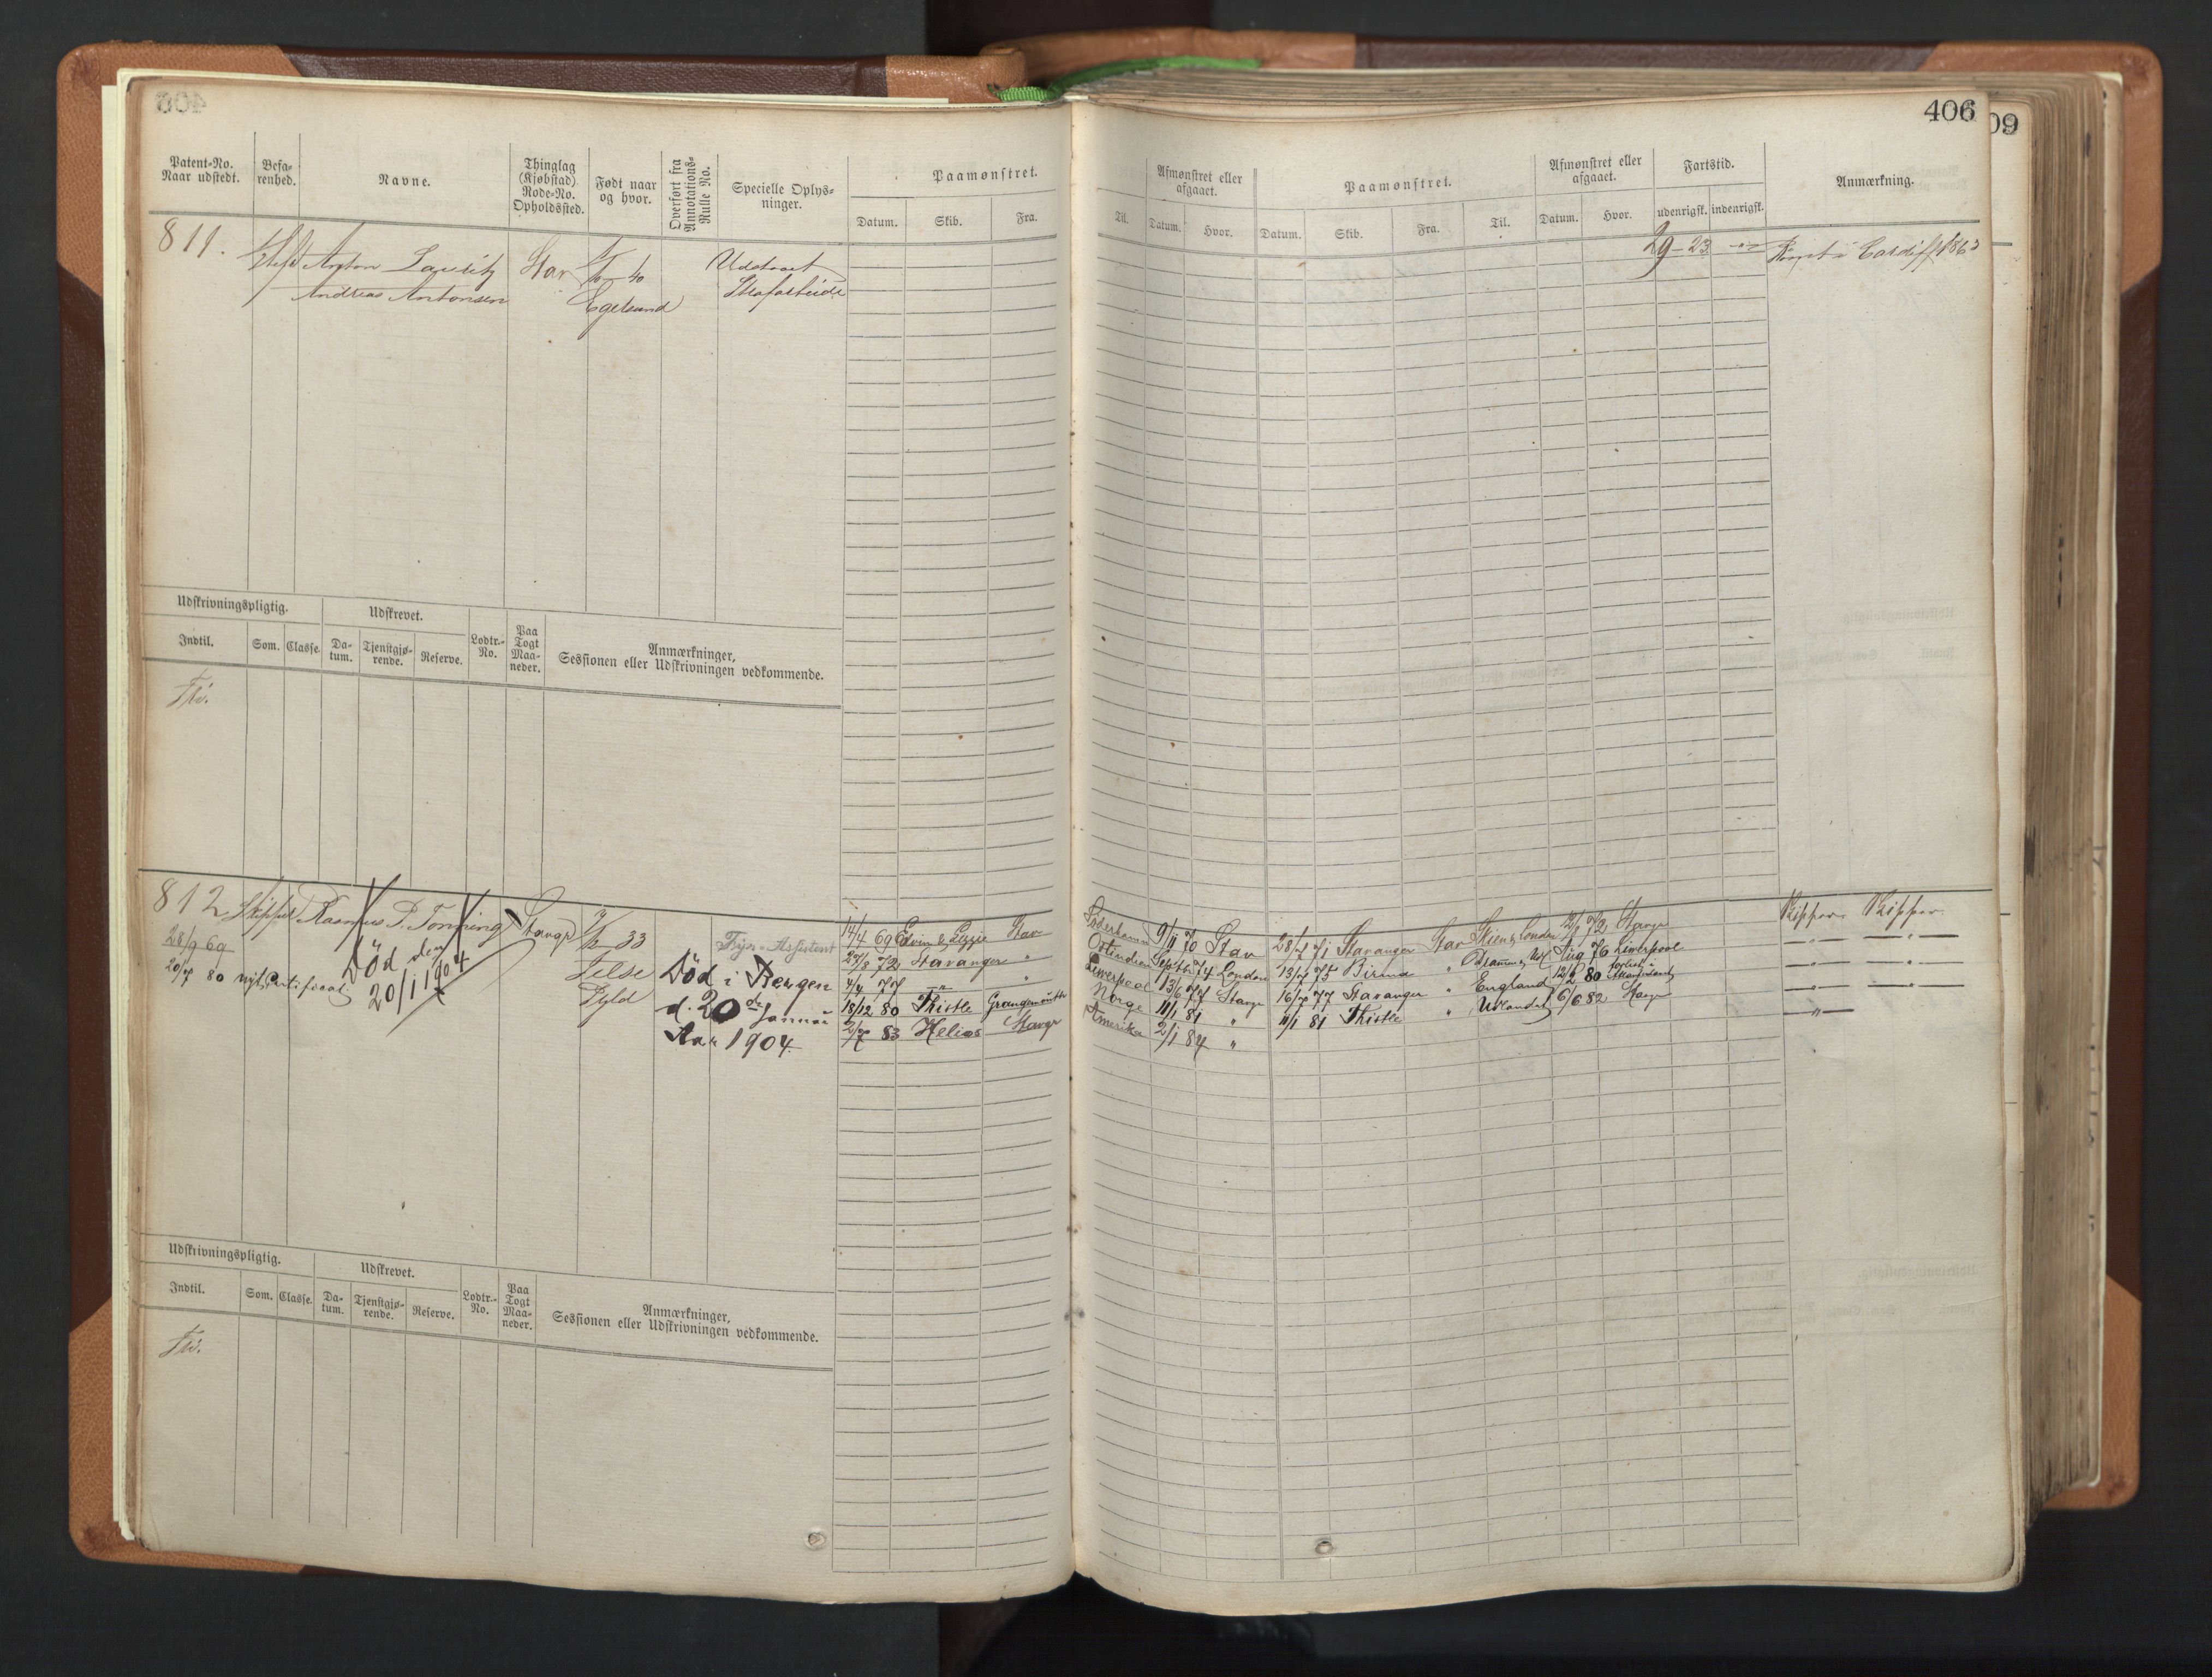 406
09
Patent-No.
Naar udstedt.
Befa-
renhed.
Navne.
Thinglag
(Kjøbstad)
Rode-No.
Opholdssted.
Født naar
og hvor.
Overført fra
Annotations-
Rulle No.
Specielle Oplys-
ninger.
Paamønstret.
Datum.
Skib.
Fra.
Til.
Afmønstret eller
afgaaet.
Datum.
Hvor.
Paamønstret.
Datum.
Skib.
Fra.
Til.
Afmønstret eller
afgaaet.
Datum.
Hvor.
Fartstid.
udenrigsk.
indenrigsk.
Anmærkning.
811.
Anton Lauritz
Andreas Antonsen
Stav
40
Egersund
Udstaaet
Strafarbeide
29-23
Rømt i Cardiff 1863
Udskrivningspligtig.
Udskrevet.
Indtil.
Som.
Classe.
Da-
tum.
Tjenstgjø-
rende.
Reserve.
Lodtr.-
No.
Paa
Togt
Maa-
neder.
Anmærkninger,
Sessionen eller Udskrivningen vedkommende.
Fri.
812
28/9 69
20/7 80 nyt Certificat
Skipper
Rasmus P. Tonning
Død den
20/1 1904
Stavgr
33
Jelse
Ryld
Fyr-Assistent
Død i Bergen
d. 20de Januar
Aar 1904.
14/4 69 Edvin & Lizzie Stav Söderhamn 9/11 70 Stav 28/7 71 Stavanger Stav Skien & London 72 Stavgr Skipper Skipper
27/8 72 Stavanger " Ostindien Septbr 74 London 13/7 75 Birma " Aug 76 Liverpool
4/4 77 " " Liverpool 13/6 77 Stavgr 16/7 77 Stavanger " England 12/2 80 forlist i
18/12 80 Thistle Grangemouth Norge 11/1 81 " 11/1 81 Thistle " Udlandet 6/6 82 Stavgr
2/7 83 Helios Stavgr Amerika 2/1 84 "
Udskrivningspligtig.
Udskrevet.
Indtil.
Som.
Classe.
Da-
tum.
Tjenstgjø-
rende.
Reserve.
Lodtr.-
No.
Paa
Togt
Maa-
neder.
Anmærkninger,
Sessionen eller Udskrivningen vedkommende.
Fri.